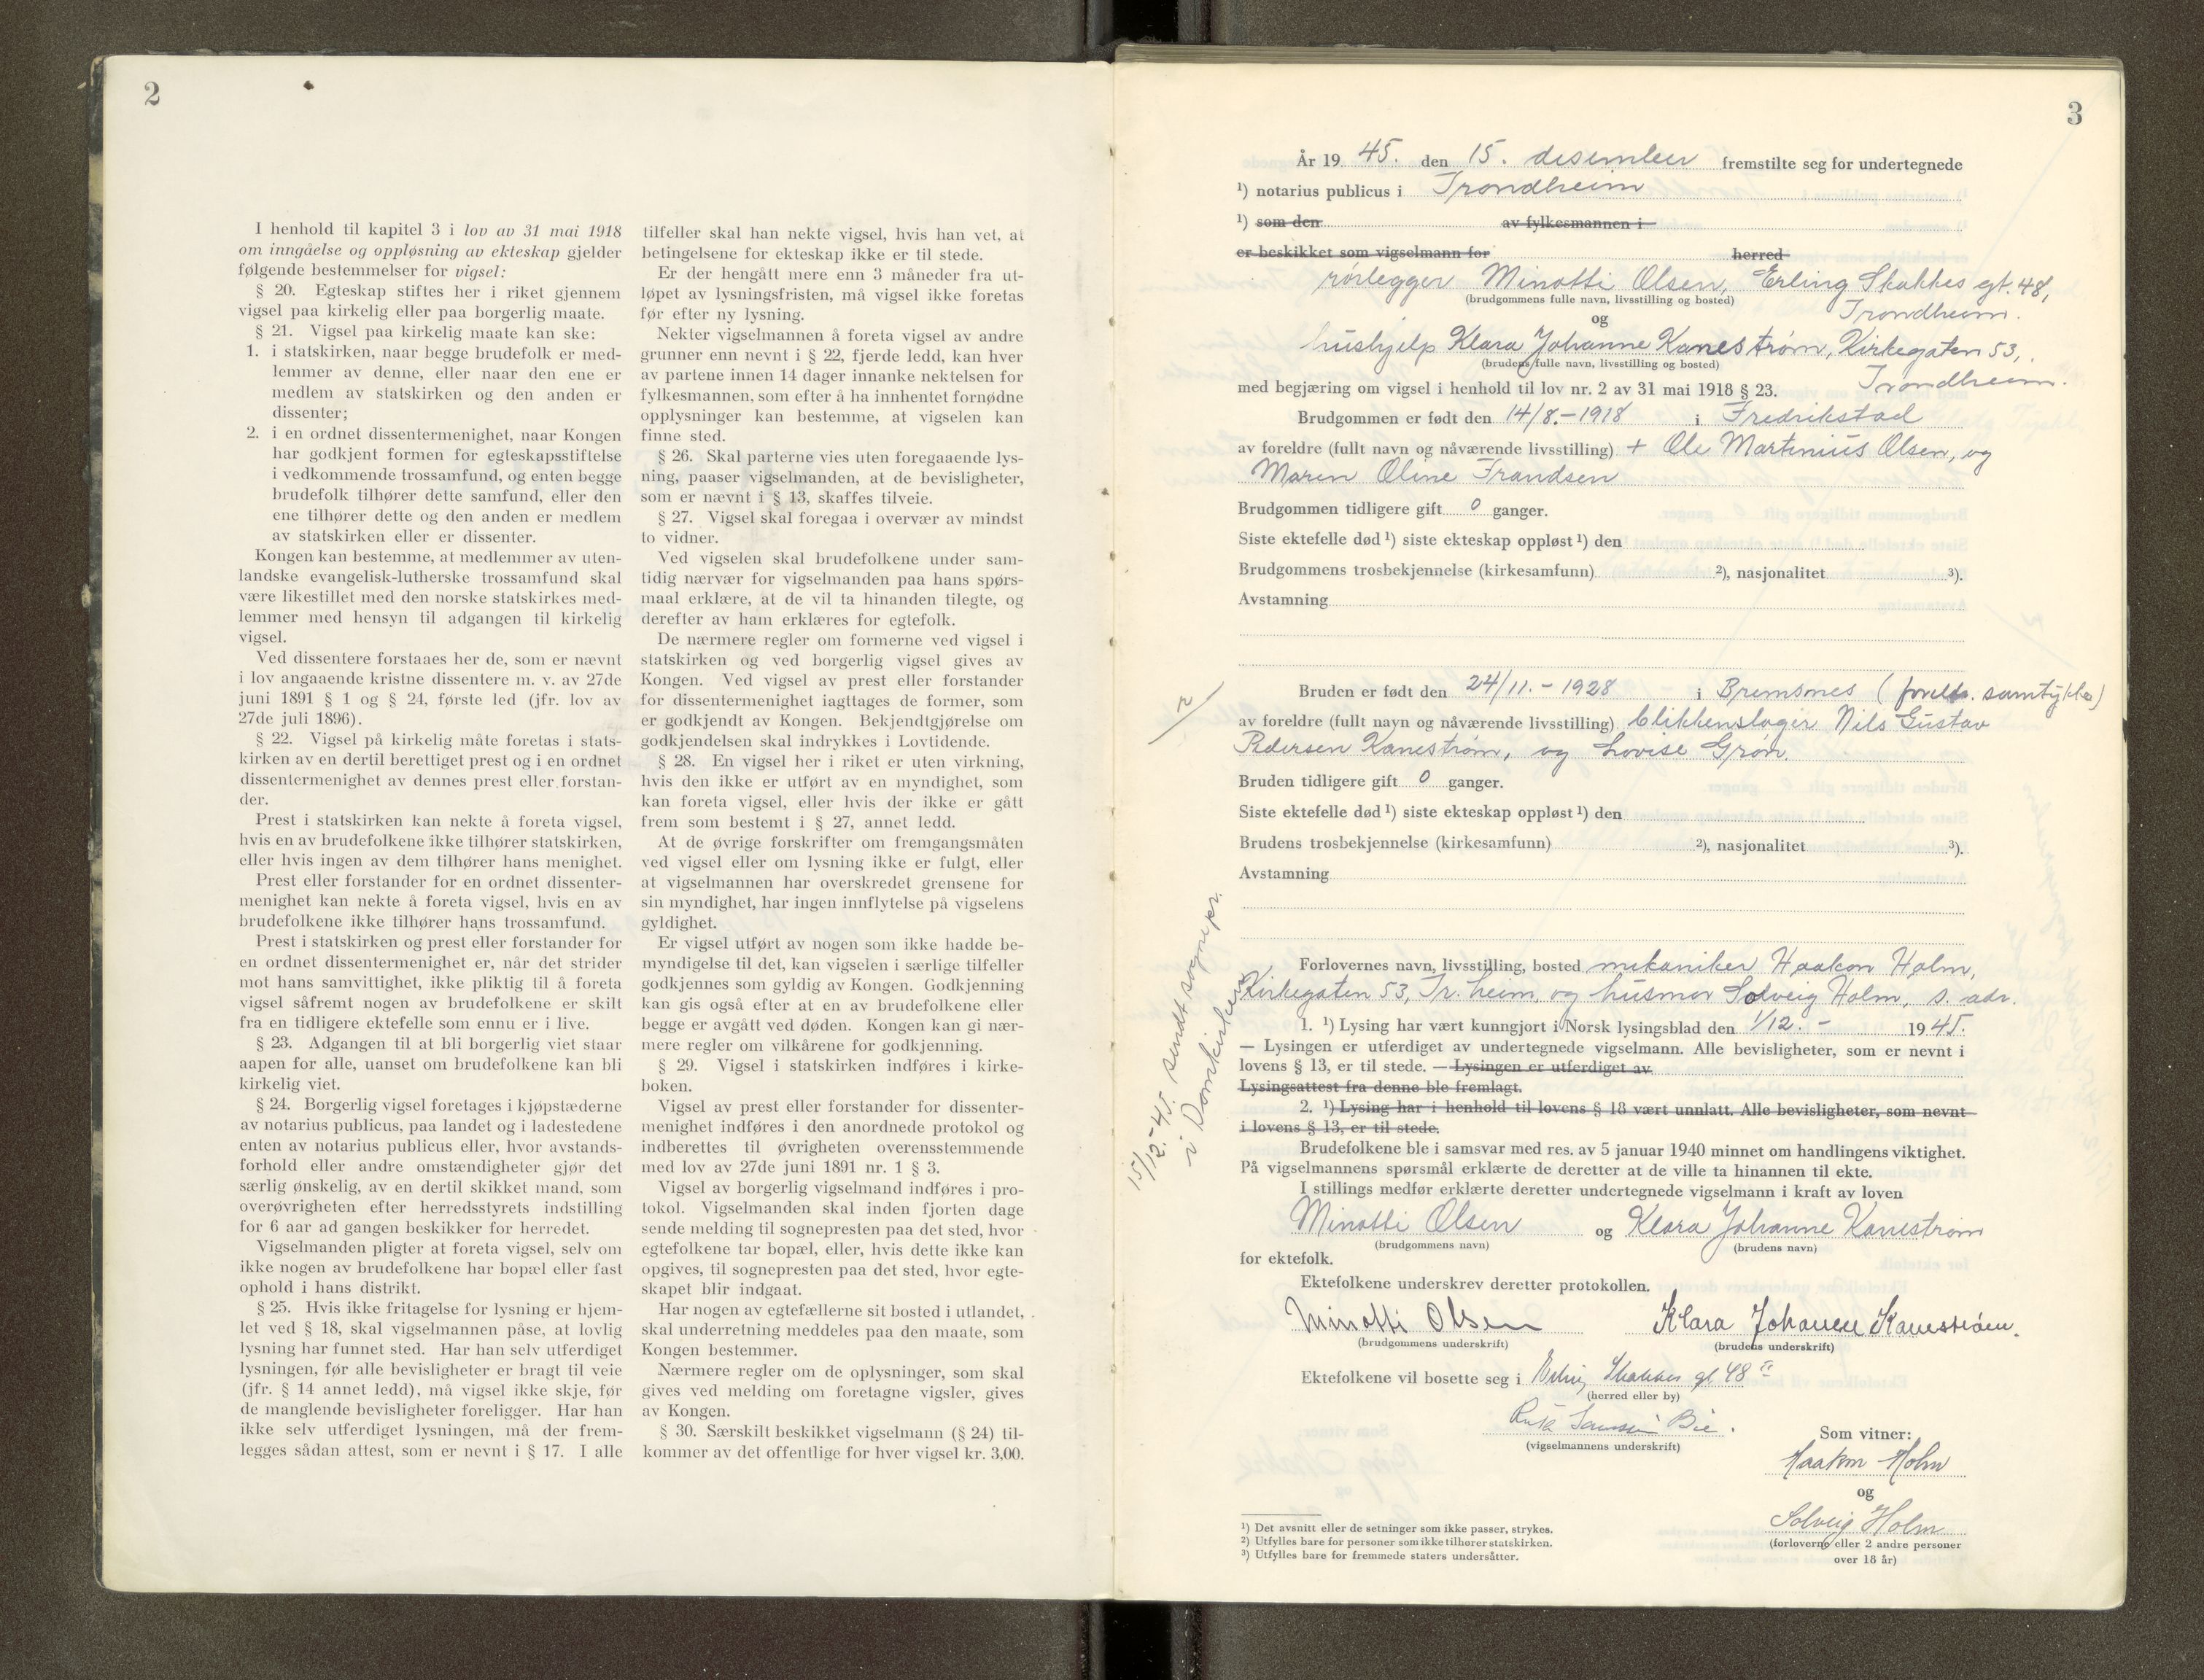 2
I henhold til kapitel 3 i lov av 31 mai 1918
om inngåelse og oppløsning av ekteskap gjelder
følgende bestemmelser for vigsel:
§ 20. Egteskap stiftes her i riket gjennem
vigsel paa kirkelig eller paa borgerlig maate.
§ 21. Vigsel paa kirkelig maate kan ske:
1. i statskirken, naar begge brudefolk er med-
lemmer av denne, eller naar den ene er
medlem av statskirken og den anden er
dissenter;
2. i en ordnet dissentermenighet, naar Kongen
har godkjent formen for egteskapsstiftelse
i vedkommende trossamfund, og enten begge
brudefolk tilhører dette samfund, eller den
ene tilhører dette og den anden er medlem
av statskirken eller er dissenter.
Kongen kan bestemme, at medlemmer av uten-
landske evangelisk-lutherske trossamfund skal
være likestillet med den norske statskirkes med-
lemmer med hensyn til adgangen til kirkelig
vigsel.
Ved dissentere forstaaes her de, som er nævnt
i lov angaaende kristne dissentere m. v. av 27de
juni 1891 § 1 og § 24, første led (jfr. lov av
27de juli 1896).
§ 22. Vigsel på kirkelig måte foretas i stats-
kirken av en dertil berettiget prest og i en ordnet
dissentermenighet av dennes prest eller forstan-
der.
Prest i statskirken kan nekte å foreta vigsel,
hvis en av brudefolkene ikke tilhører statskirken,
eller hvis ingen av dem tilhører hans menighet.
Prest eller forstander for en ordnet dissenter-
menighet kan nekte å foreta vigsel, hvis en av
brudefolkene ikke tilhører hans trossamfund.
Prest i statskirken og prest eller forstander for
en ordnet dissentermenighet er, når det strider
mot hans samvittighet, ikke pliktig til å foreta
vigsel såfremt nogen av brudefolkene er skilt
fra en tidligere ektefelle som ennu er i live.
§ 23. Adgangen til at bli borgerlig viet staar
aapen for alle, uanset om brudefolkene kan bli
kirkelig viet.
§ 24. Borgerlig vigsel foretages i kjøpstæderne
av notarius publicus, paa landet og i ladestedene
enten av notarius publicus eller, hvor avstands-
forhold eller andre omstændigheter gjør det
særlig ønskelig, av en dertil skikket mand, som
overøvrigheten efter herredsstyrets indstilling
for 6 aar ad gangen beskikker for herredet.
Vigselmanden pligter at foreta vigsel, selv om
ikke nogen av brudefolkene har bopæl eller fast
ophold i hans distrikt.
§ 25. Hvis ikke fritagelse for lysning er hjem-
let ved § 18, skal vigselmannen påse, at lovlig
lysning har funnet sted. Har han selv utferdiget
lysningen, før alle bevisligheter er bragt til veie
(jfr. § 14 annet ledd), må vigsel ikke skje, før
de manglende bevisligheter foreligger. Har han
ikke selv utferdiget lysningen, må der frem-
legges sådan attest, som er nevnt i § 17. I alle
tilfeller skal han nekte vigsel, hvis han vet, at
betingelsene for ekteskap ikke er til stede.
Er der hengått mere enn 3 måneder fra ut-
løpet av lysningsfristen, må vigsel ikke foretas
før efter ny lysning.
Nekter vigselmannen å foreta vigsel av andre
grunner enn nevnt i § 22, fjerde ledd, kan hver
av partene innen 14 dager innanke nektelsen for
fylkesmannen, som efter å ha innhentet fornødne
opplysninger kan bestemme, at vigselen kan
finne sted.
§ 26. Skal parterne vies uten foregaaende lys-
ning, paaser vigselmanden, at de bevisligheter,
som er nævnt i § 13, skaffes tilveie.
§ 27. Vigsel skal foregaa i overvær av mindst
to vidner.
Ved vigselen skal brudefolkene under sam-
tidig nærvær for vigselmanden paa hans spørs-
maal erklære, at de vil ta hinanden tilegte, og
derefter av ham erklæres for egtefolk.
De nærmere regler om formerne ved vigsel i
statskirken og ved borgerlig vigsel gives av
Kongen. Ved vigsel av prest eller forstander
for dissentermenighet iagttages de former, som
er godkjendt av Kongen. Bekjendtgjørelse om
godkjendelsen skal indrykkes i Lovtidende.
§ 28. En vigsel her i riket er uten virkning,
hvis den ikke er utført av en myndighet, som
kan foreta vigsel, eller hvis der ikke er gått
frem som bestemt i § 27, annet ledd.
At de øvrige forskrifter om fremgangsmåten
ved vigsel eller om lysning ikke er fulgt, eller
at vigselmannen har overskredet grensene for
sin myndighet, har ingen innflytelse på vigselens
gyldighet.
Er vigsel utført av nogen som ikke hadde be-
myndigelse til det, kan vigselen i særlige tilfeller
godkjennes som gyldig av Kongen. Godkjenning
kan gis også efter at en av brudefolkene eller
begge er avgått ved døden. Kongen kan gi nær-
mere regler om vilkårene for godkjenning.
§ 29. Vigsel i statskirken indføres i kirke-
boken.
Vigsel av prest eller forstander for dissenter-
menighet indføres i den anordnede protokol og
indberettes til øvrigheten overensstemmende
med lov av 27de juni 1891 nr. 1 § 3.
Vigsel av borgerlig vigselmand indføres i pro-
tokol. Vigselmanden skal inden fjorten dage
sende melding til sognepresten paa det sted, hvor
egtefolkene tar bopæl, eller, hvis dette ikke kan
opgives, til sognepresten paa det sted, hvor egte-
skapet blir indgaat.
Har nogen av egtefællerne sit bosted i utlandet,
skal underretning meddeles paa den maate, som
Kongen bestemmer.
Nærmere regler om de oplysninger, som skal
gives ved melding om foretagne vigsler, gives
av Kongen.
§ 30. Særskilt beskikket vigselmann (§ 24) til-
kommer av det offentlige for hver vigsel kr. 3,00.
3
År 19 45. den 15. desember fremstilte seg for undertegnede
¹) notarius publicus i Trondheim
¹) som den av fylkesmannen i
er beskikket som vigselmann for herred
rørlegger Minotti Olsen, Erling Skakkes gt. 48,
(brudgommens fulle navn, livsstilling og bosted)
Trondheim.
og
hushjelp Klara Johanne Kanestrøm, Kirkegaten 53,
(brudens fulle navn, livsstilling og bosted)
Trondheim.
med begjæring om vigsel i henhold til lov nr. 2 av 31 mai 1918 § 23.
Brudgommen er født den 14/8.-1918 i Fredrikstad
av foreldre (fullt navn og nåværende livsstilling) + Ole Martinius Olsen, og
Maren Oline Frandsen
Brudgommen tidligere gift 0 ganger.
Siste ektefelle død ¹) siste ekteskap oppløst ¹) den
Brudgommens trosbekjennelse (kirkesamfunn) ²), nasjonalitet ³).
Avstamning
2/
Bruden er født den 24/11.-1928 i Bremsnes (foreldr. samtykke)
av foreldre (fullt navn og nåværende livsstilling) blikkenslager Nils Gustav
Pedersen Kanestrøm, og Lovise Grøn.
Bruden tidligere gift 0 ganger.
Siste ektefelle død ¹) siste ekteskap oppløst ¹) den
Brudens trosbekjennelse (kirkesamfunn) ²), nasjonalitet ³).
Avstamning
15/12.-45. sendt sognepr.
i Domkirken
Forlovernes navn, livsstilling, bosted mekaniker Haakon Holm,
Kirkegaten 53, Tr.heim, og husmor Solveig Holm, s. adr.
1. ¹) Lysing har vært kunngjort i Norsk lysingsblad den 1/12. - 1945.
— Lysingen er utferdiget av undertegnede vigselmann. Alle bevisligheter, som er nevnt i
lovens § 13, er til stede. — Lysingen er utferdiget av
Lysingsattest fra denne ble fremlagt.
2. ¹) Lysing har i henhold til lovens § 18 vært unnlatt. Alle bevisligheter, som nevnt
i lovens § 13, er til stede.
Brudefolkene ble i samsvar med res. av 5 januar 1940 minnet om handlingens viktighet.
På vigselmannens spørsmål erklærte de deretter at de ville ta hinannen til ekte.
I stillings medfør erklærte deretter undertegnede vigselmann i kraft av loven
Minotti Olsen og Klara Johanne Kanestrøm
(brudgommens navn) (brudens navn)
for ektefolk.
Ektefolkene underskrev deretter protokollen.
Minotti Olsen Klara Johanne Kanestrøm.
(brudgommens underskrift) (brudens underskrift)
Ektefolkene vil bosette seg i Erling Skakkes gt 48
(herred eller by)
Bie.
(vigselmannens underskrift)
Som vitner:
Haakon Holm
og
Solveig Holm
(forloverne eller 2 andre personer
over 18 år)
¹) Det avsnitt eller de setninger som ikke passer, strykes.
²) Utfylles bare for personer som ikke tilhører statskirken.
³) Utfylles bare for fremmede staters undersåtter.